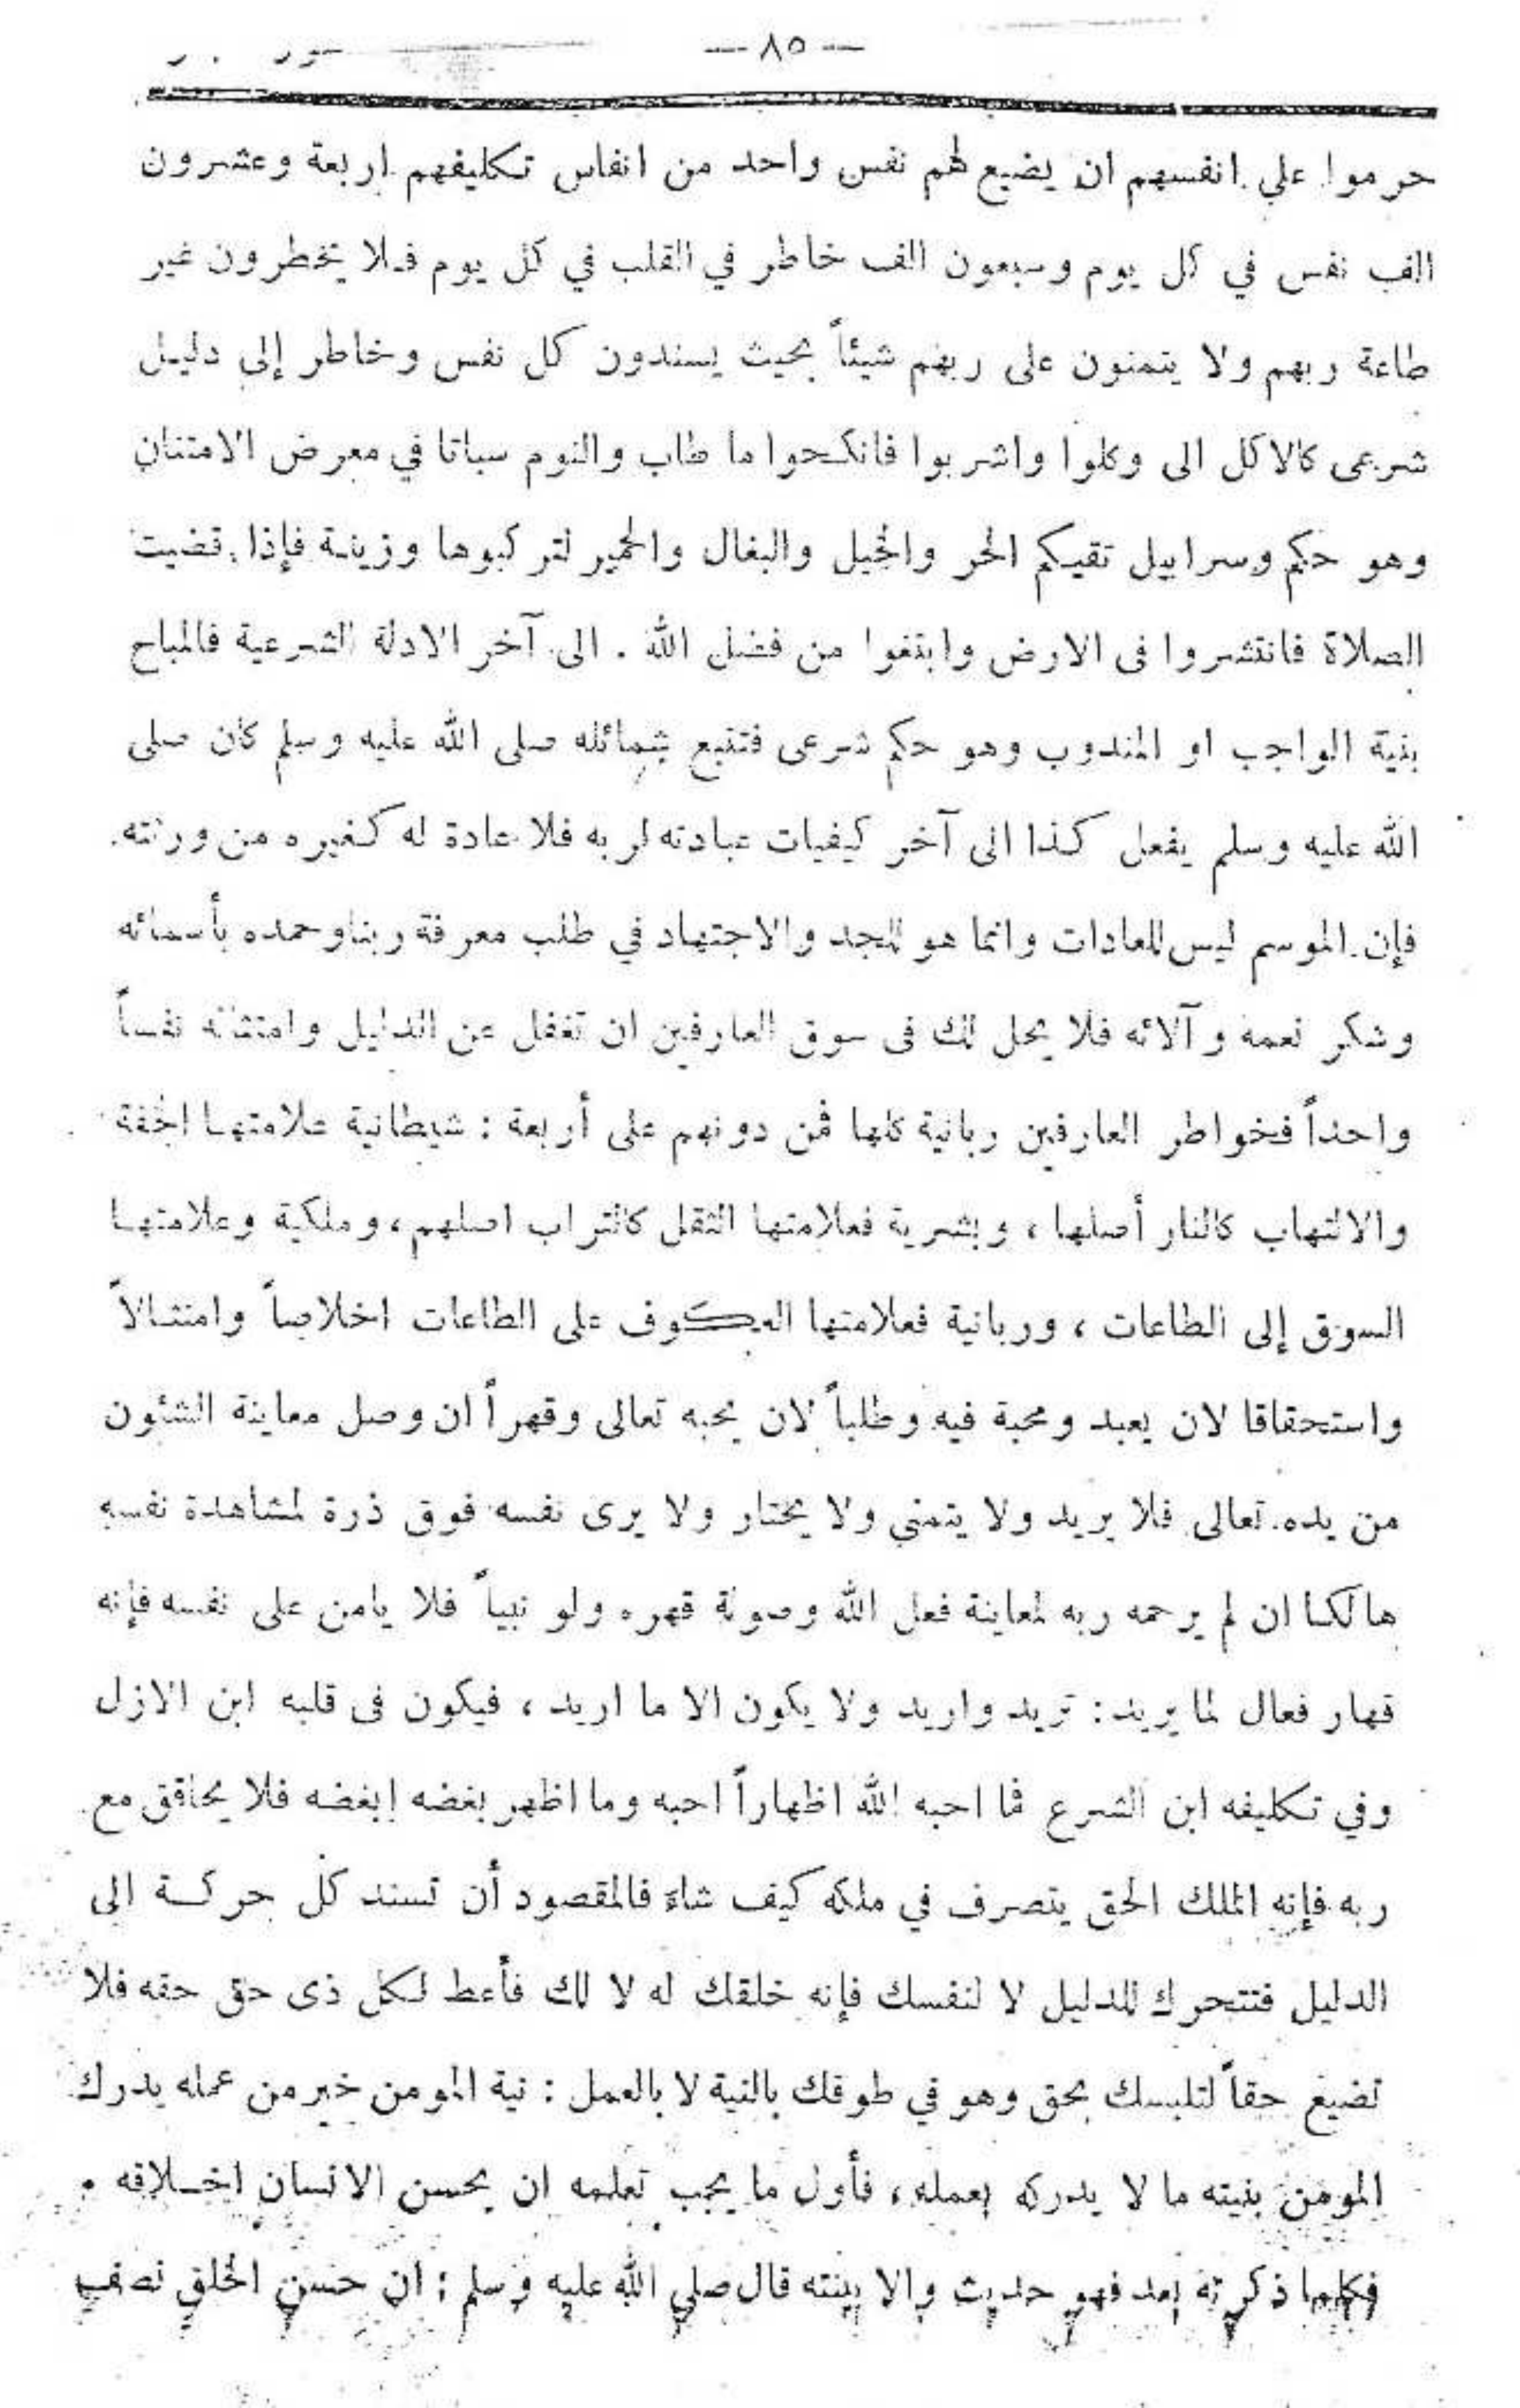 — ٨٥ —
حرموا على انفسهم ان يضيع لهم نفس واحد من انفاس تكليفهم اربعة وعشرون
الف نفس في كل يوم وسبعون الف خاطر في القلب في كل يوم فلا يخطرون غير
طاعة ربهم ولا يتمنون على ربهم شيئاً بحيث يسندون كل نفس وخاطر إلى دليل
شرعى كالاكل الى وكلوا واشربوا فانكحوا ما طاب والنوم سباتا في معرض الامتنان
وهو حكم وسرابيل تقيكم الحر والخيل والبغال والحمير لتركبوها وزينة فإذا قضيت
الصلاة فانتشروا فى الارض وابتغوا من فضل الله . الى آخر الادلة الشرعية فالمباح
بنية الواجب او المندوب وهو حكم شرعى فتتبع شمائله صلى الله عليه وسلم كان صلى
الله عليه وسلم يفعل كذا الى آخر كيفيات عبادته لربه فلا عادة له كغيره من ورثته.
فإن الموسم ليس للعادات وانما هو للجد والاجتهاد في طلب معرفة ربنا وحمده بأسمائه
وشكر نعمه وآلائه فلا يحل لك فى سوق العارفين ان تغفل عن الدليل وامتثاله نفساً
واحداً فخواطر العارفين ربانية كلها فمن دونهم على أربعة : شيطانية علامتها الخفة
والالتهاب كالنار أصلها ، وبشرية فعلامتها الثقل كالتراب اصلهم ، وملكية وعلامتها
السوق إلى الطاعات ، وربانية فعلامتها العكوف على الطاعات اخلاصاً وامتثالاً
واستحقاقا لان يعبد ومحبة فيه وطلباً لان يحبه تعالى وقهراً ان وصل معاينة الشئون
من يده تعالى فلا يريد ولا يتمني ولا يختار ولا يرى نفسه فوق ذرة لمشاهدة نفسه
هالكا ان لم يرحمه ربه لمعاينة فعل الله وصولة قهره ولو نبياً فلا يامن على نفسه فإنه
قهار فعال لما يريد : تريد واريد ولا يكون الا ما اريد ، فيكون فى قلبه ابن الازل
وفي تكليفه ابن الشرع فما احبه الله اظهاراً احبه وما اظهر بغضه ابغضه فلا يحاقق مع
ربه فإنه الملك الحق يتصرف في ملكه كيف شاء فالمقصود أن تسند كل حركة الى
الدليل فتتحرك للدليل لا لنفسك فإنه خلقك له لا لك فأعط لكل ذى حق حقه فلا
تضيع حقاً لتلبسك بحق وهو في طوقك بالنية لا بالعمل : نية المومن خير من عمله يدرك
المومن بنيته ما لا يدركه بعمله ، فأول ما يجب تعلمه ان يحسن الانسان اخلاقه .
فكلما ذكرته بعد فهو حديث والا بينته قال صلي الله عليه وسلم : ان حسن الخلق نصف